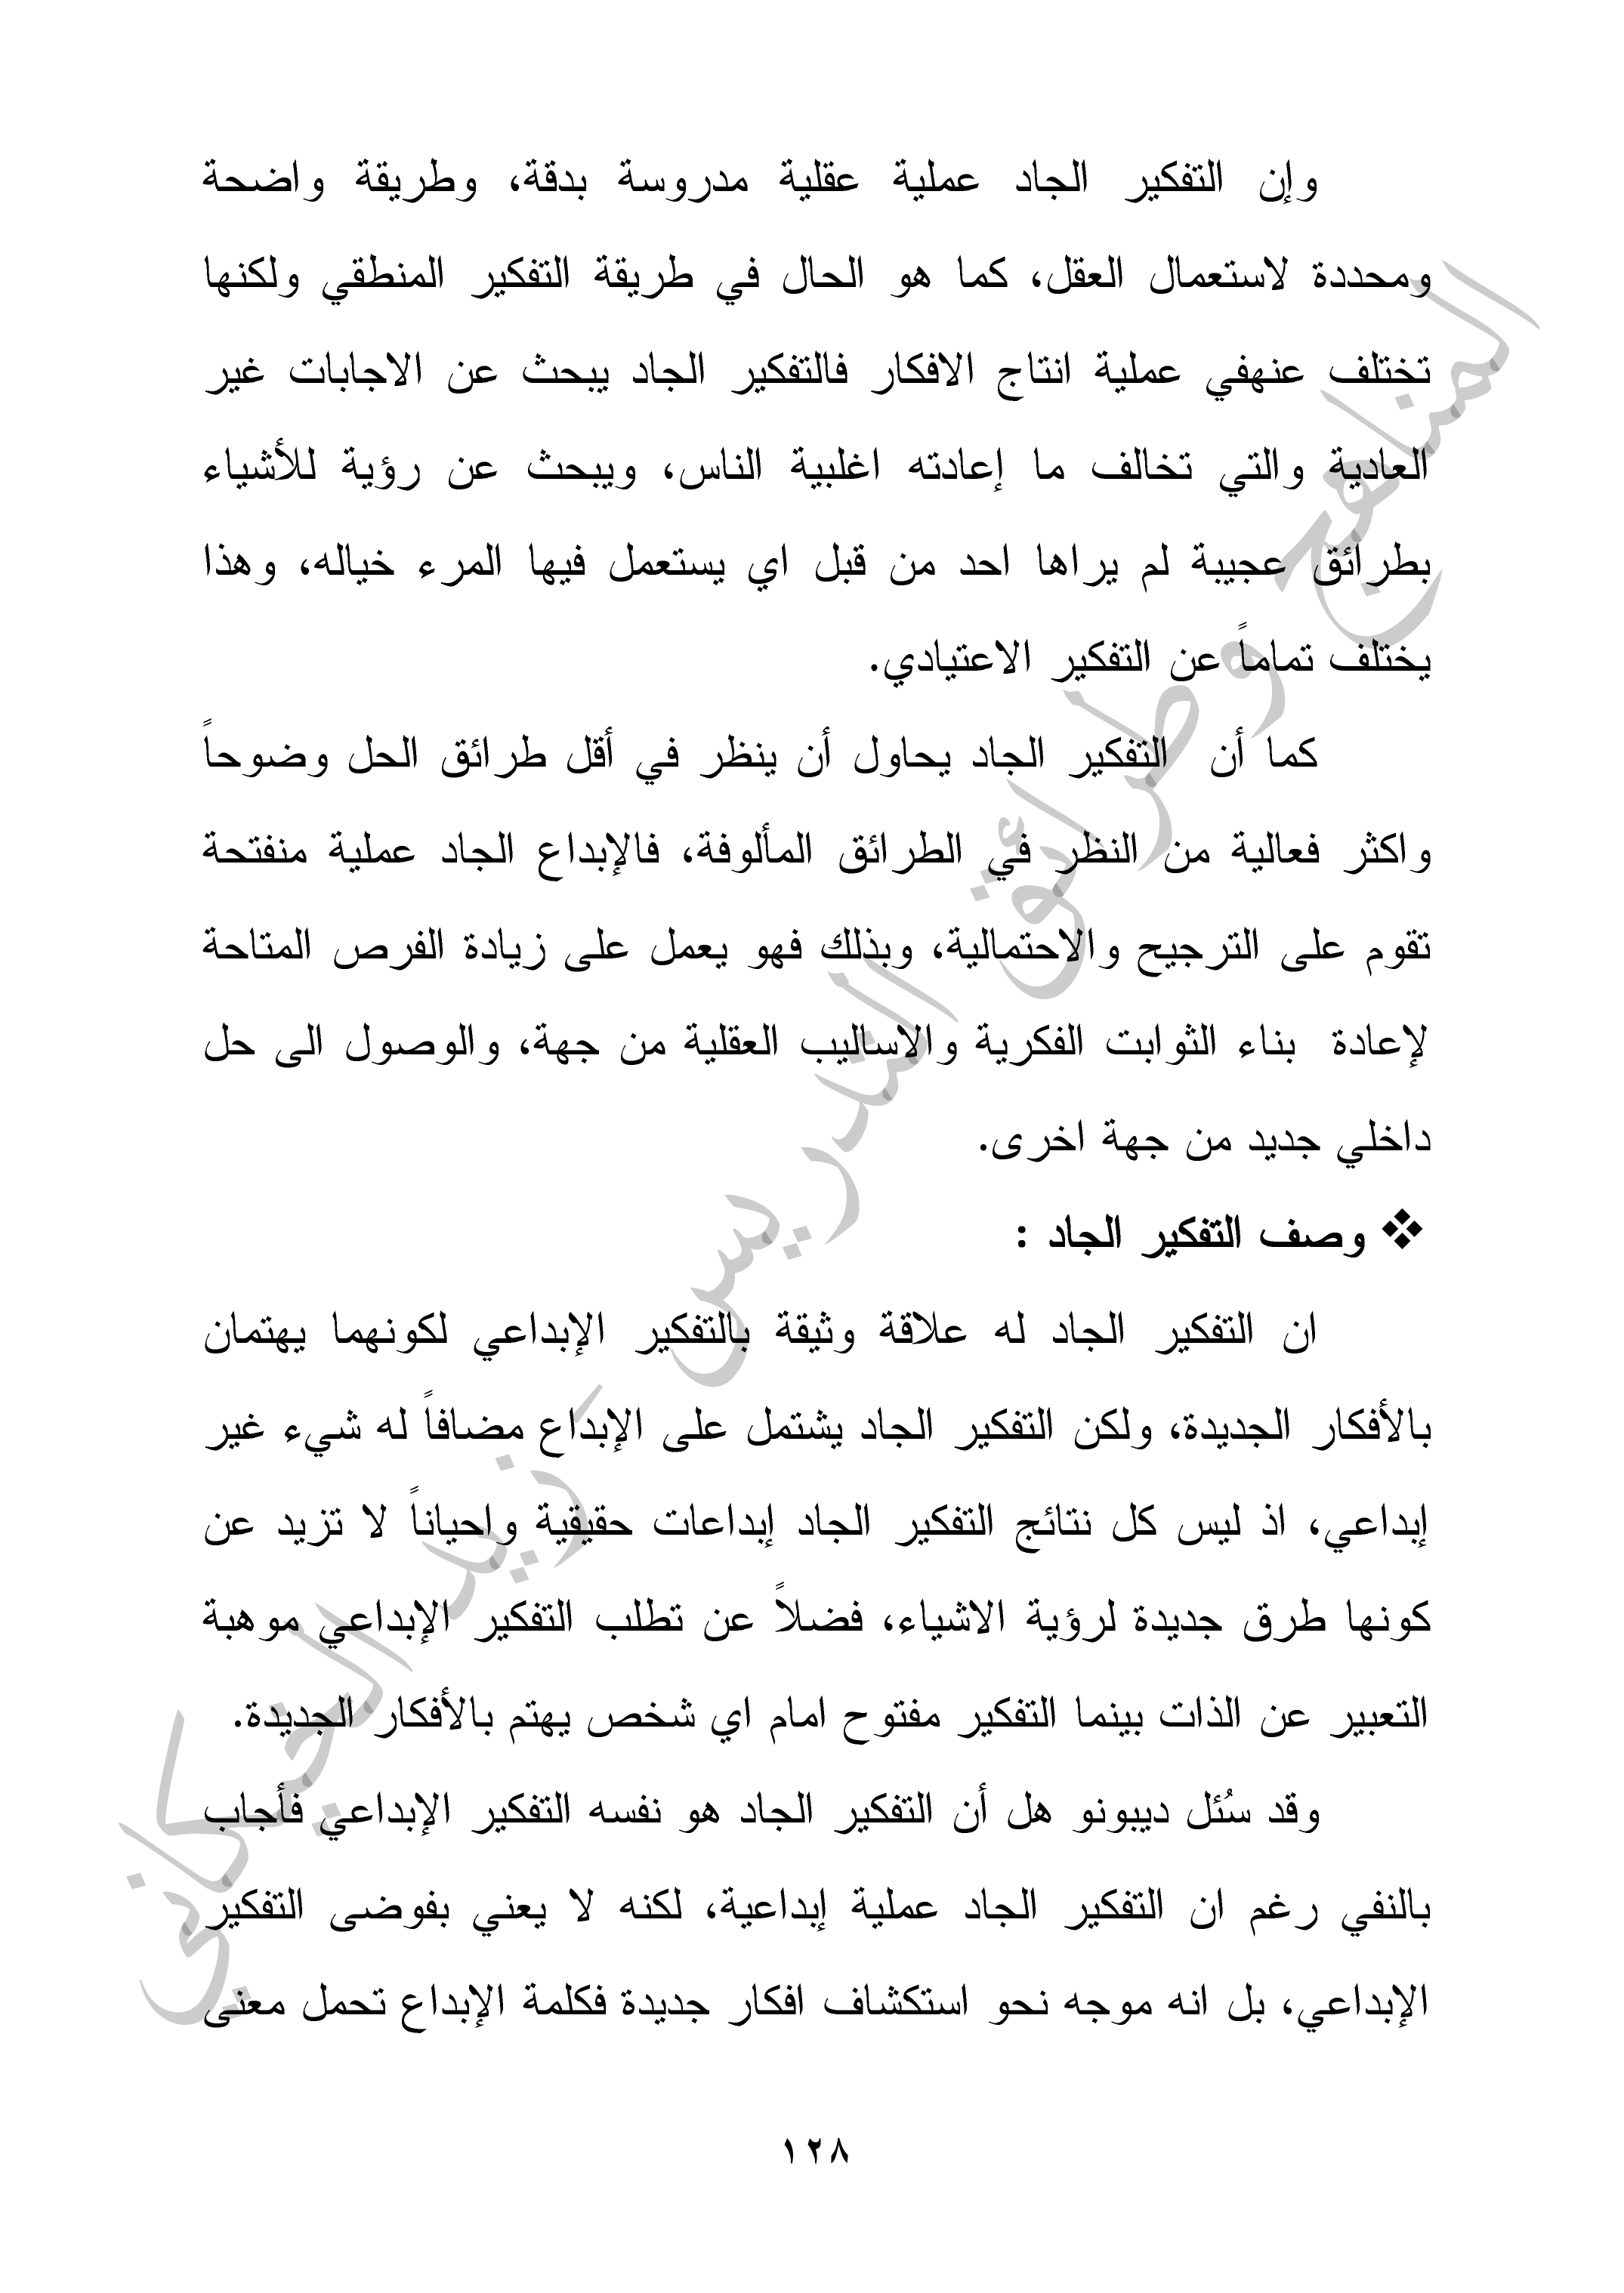 وإن التفكير الجاد عملية عقلية مدروسة بدقة، وطريقة واضحة
ومحددة لاستعمال العقل، كما هو الحال في طريقة التفكير المنطقي ولكنها
تختلف عنهفي عملية انتاج الافكار فالتفكير الجاد يبحث عن الاجابات غير
العادية والتي تخالف ما إعادته اغلبية الناس، ويبحث عن رؤية للأشياء
بطرائق عجيبة لم يراها احد من قبل اي يستعمل فيها المرء خياله، وهذا
يختلف تماماً عن التفكير الاعتيادي.
كما أن التفكير الجاد يحاول أن ينظر في أقل طرائق الحل وضوحاً
واكثر فعالية من النظر في الطرائق المألوفة، فالإبداع الجاد عملية منفتحة
تقوم على الترجيح والاحتمالية، وبذلك فهو يعمل على زيادة الفرص المتاحة
لإعادة بناء الثوابت الفكرية والاساليب العقلية من جهة، والوصول الى حل
داخلي جديد من جهة اخرى.
❖ وصف التفكير الجاد :
ان التفكير الجاد له علاقة وثيقة بالتفكير الإبداعي لكونهما يهتمان
بالأفكار الجديدة، ولكن التفكير الجاد يشتمل على الإبداع مضافاً له شيء غير
إبداعي، اذ ليس كل نتائج التفكير الجاد إبداعات حقيقية واحياناً لا تزيد عن
كونها طرق جديدة لرؤية الاشياء، فضلاً عن تطلب التفكير الإبداعي موهبة
التعبير عن الذات بينما التفكير مفتوح امام اي شخص يهتم بالأفكار الجديدة.
وقد سُئل ديبونو هل أن التفكير الجاد هو نفسه التفكير الإبداعي فأجاب
بالنفي رغم ان التفكير الجاد عملية إبداعية، لكنه لا يعني بفوضى التفكير
الإبداعي، بل انه موجه نحو استكشاف افكار جديدة فكلمة الإبداع تحمل معنى
١٢٨
المناهج وطرائق التدريس - زيد الخيكاني